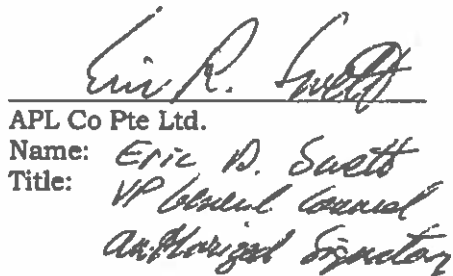 Eric R. Swett
APL Co Pte Ltd.
Name: Eric R. Swett
Title: VP General Counsel
Authorized Signatory